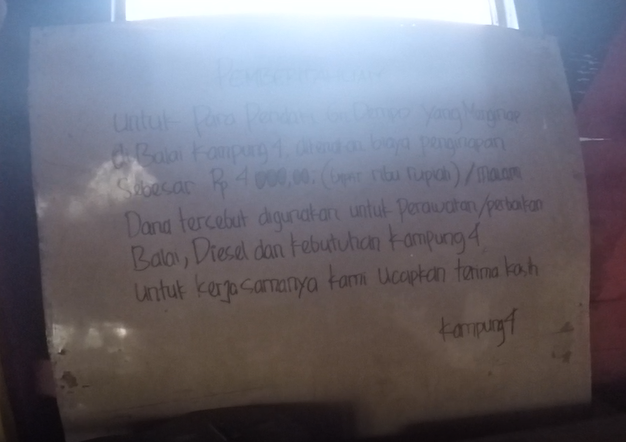 PEMBERITAHUAN
Untuk Para Pendaki Dempo Yang Menginap
di Balai Kampung 4, dikenakan biaya penginapan
Sebesar Rp 4000,00; ( ribu rupiah) / malam
Dana tersebut digunakan untuk Perawatan/perbaikan
Balai, Diesel dan Kebutuhan Kampung 4
untuk kerja samanya kami ucapkan terima kasih
Kampung 4